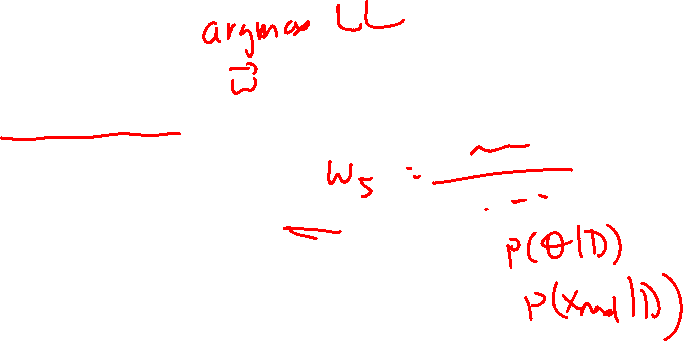 argmax LL
w⃗
w₅ =
p(θ|D)
p(x_new|D)